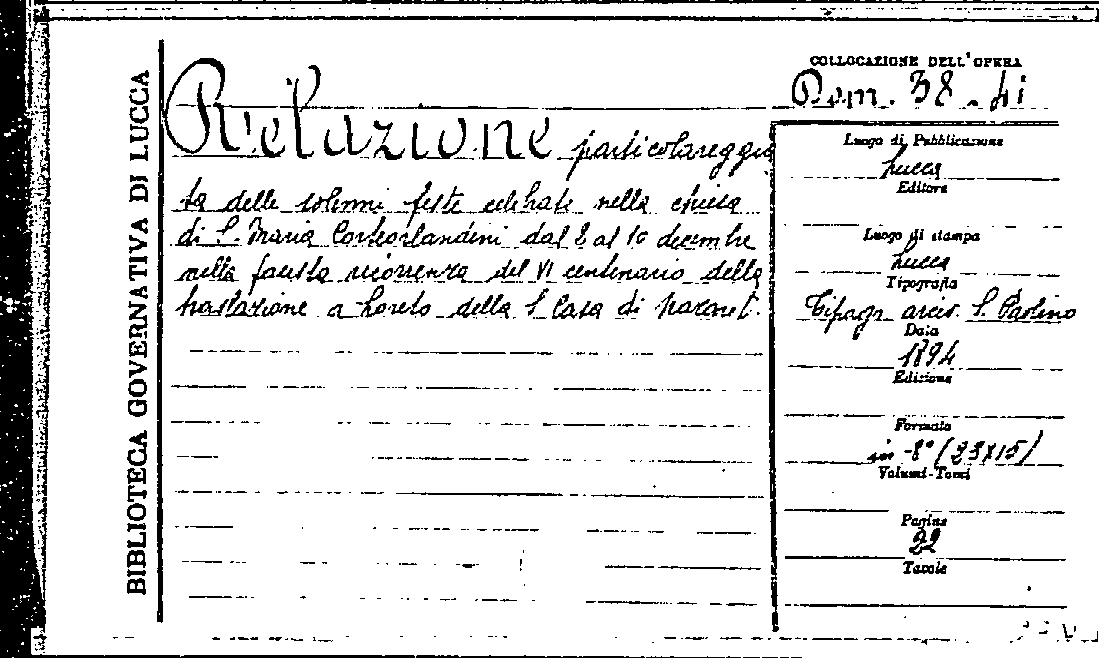 BIBLIOTECA GOVERNATIVA DI LUCCA
Relazione particolareggia
ta delle solenni feste celebrate nella chiesa
di S. Maria Corteorlandini dal 8 al 10 decembre
nella fausta ricorrenza del VI centenario della
traslazione a Loreto della S. Casa di Nazaret.
COLLOCAZIONE DELL'OPERA
38
Luogo di Pubblicazione
Lucca
Editore
Luogo di stampa
Lucca
Tipografia
Tipogr. arciv. S. Paolino
Data
1894
Edizione
Formato
in-8° (23x15)
Volumi-Tomi
Pagine
22
Tavole